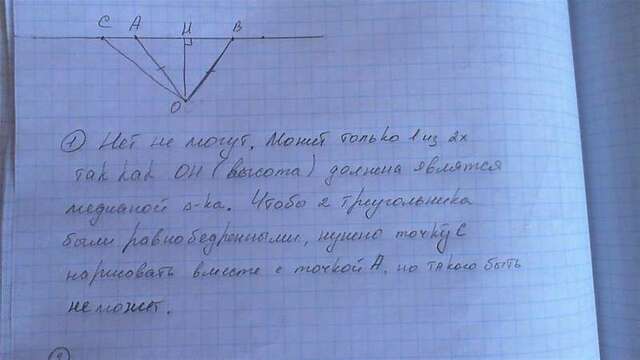 C A H B
O
① Нет не могут. Может только 1 из 2х
так как OH (высота) должена являтся
медианой Δ-ка. Чтобы 2 треугольника
были равнобедренными, нужно точку C
нарисовать вместе с точкой A, но такого быть
не может.